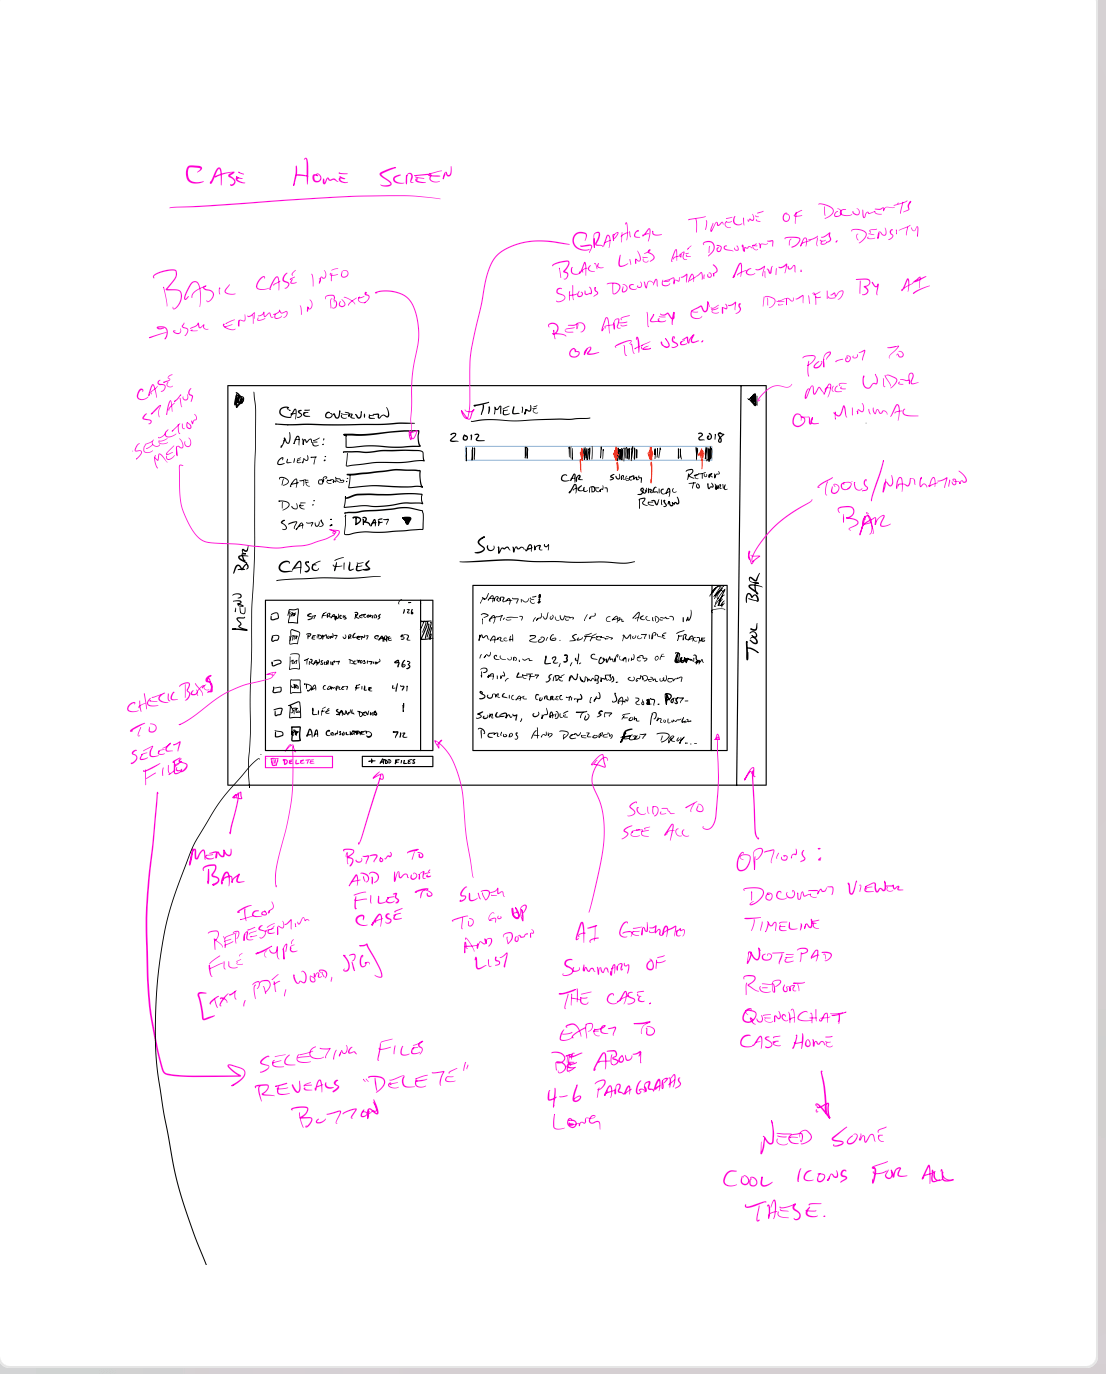 CASE HOME SCREEN
GRAPHICAL TIMELINE OF DOCUMENTS
BLACK LINES ARE DOCUMENT DATES. DENSITY
SHOWS DOCUMENTATION ACTIVITY.
RED ARE KEY EVENTS IDENTIFIED BY AI
OR THE USER.
BASIC CASE INFO
→ USER ENTERED IN BOXES
CASE
STATUS
SELECTION
MENU
POP-OUT TO
MAKE WIDER
OR MINIMAL
TOOLS/NAVIGATION
BAR
MENU BAR
CASE OVERVIEW
NAME:
CLIENT:
DATE OPENED:
DUE:
STATUS: DRAFT
TIMELINE
2012 2018
CAR ACCIDENT
SURGERY
SURGICAL REVISION
RETURN TO WORK
CASE FILES
ST FRANCIS RECORDS 126
PIEDMONT URGENT CARE 52
TRANSCRIPT DEPOSITION 963
DA COMPLET FILE 471
LIFE 1
AA CONSOLIDATED 712
DELETE
+ ADD FILES
SUMMARY
NARRATIVE:
PATIENT INVOLVED IN CAR ACCIDENT IN
MARCH 2016. SUFFERS MULTIPLE
INCLUDING L2,3,4. COMPLAINED OF
PAIN, LEFT SIDE NUMBNESS. UNDERWENT
SURGICAL CORRECTION IN JAN 2017. POST-
SURGERY, UNABLE TO SIT FOR PROLONGED
PERIODS AND DEVELOPED FOOT DROP...
TOOL BAR
CHECK BOXES
TO
SELECT
FILES
MENU
BAR
ICON
REPRESENTING
FILE TYPE
[TXT, PDF, WORD, JPG]
BUTTON TO
ADD MORE
FILES TO
CASE
SLIDER
TO GO UP
AND DOWN
LIST
SELECTING FILES
REVEALS "DELETE"
BUTTON
AI GENERATED
SUMMARY OF
THE CASE.
EXPECT TO
BE ABOUT
4-6 PARAGRAPHS
LONG
SLIDER TO
SEE ALL
OPTIONS:
DOCUMENT VIEWER
TIMELINE
NOTEPAD
REPORT
QUENCHCHAT
CASE HOME
NEED SOME
COOL ICONS FOR ALL
THESE.